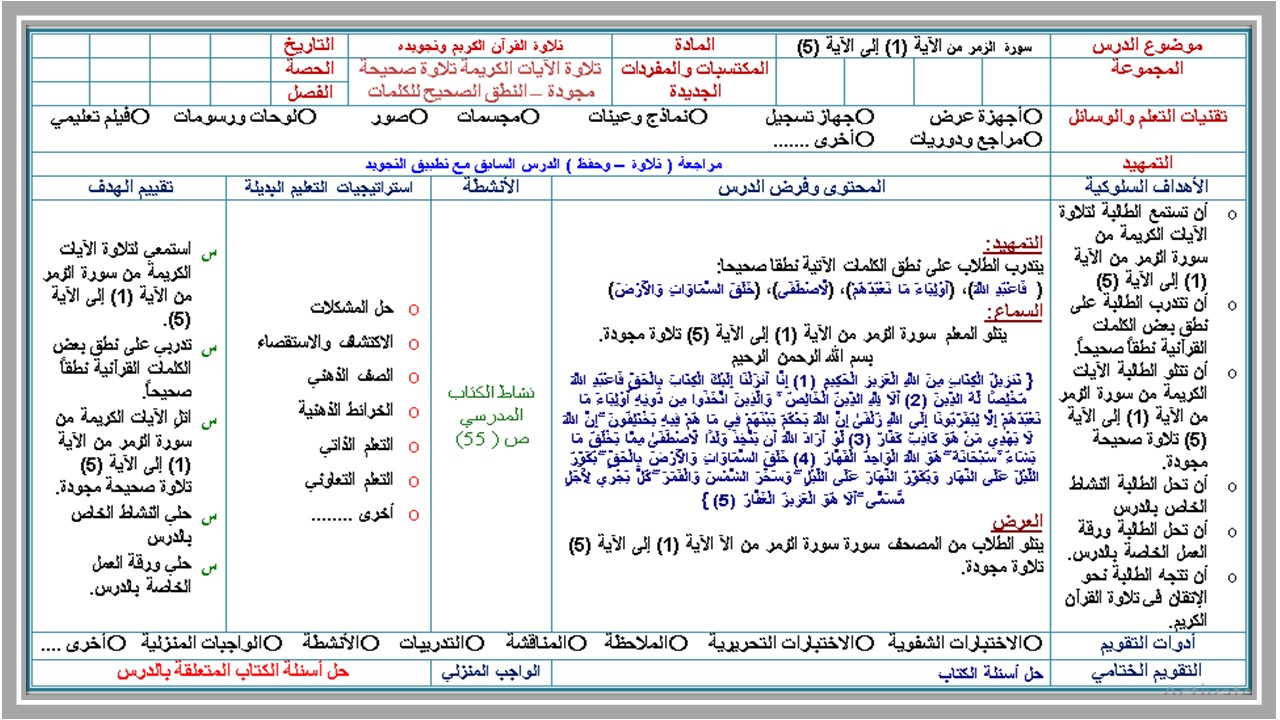 موضوع الدرس سورة الزمر من الآية (1) إلى الآية (5) المادة تلاوة القرآن الكريم وتجويده التاريخ
المجموعة المكتسبات والمفردات الجديدة تلاوة الآيات الكريمة تلاوة صحيحة مجودة – النطق الصحيح للكلمات الحصة
الفصل
تقنيات التعلم والوسائل Oأجهزة عرض Oجهاز تسجيل Oنماذج وعينات Oمجسمات Oصور Oلوحات ورسومات Oفيلم تعليمي
Oمراجع ودوريات Oأخرى .......
التمهيد مراجعة ( تلاوة – وحفظ ) الدرس السابق مع تطبيق التجويد
الأهداف السلوكية المحتوى وفرض الدرس الأنشطة استراتيجيات التعليم البديلة تقييم الهدف
o أن تستمع الطالبة لتلاوة
الآيات الكريمة من
سورة الزمر من الآية
(1) إلى الآية (5)
o أن تتدرب الطالبة على
نطق بعض الكلمات
القرآنية نطقاً صحيحاً.
o أن تتلو الطالبة الآيات
الكريمة من سورة الزمر
من الآية (1) إلى الآية
(5) تلاوة صحيحة
مجودة.
o أن تحل الطالبة النشاط
الخاص بالدرس
o أن تحل الطالبة ورقة
العمل الخاصة بالدرس.
o أن تتجه الطالبة نحو
الإتقان في تلاوة القرآن
الكريم.
التمهيد:
يتدرب الطلاب على نطق الكلمات الآتية نطقا صحيحا:
( فَاعْبُدِ اللهَ)، (أَوْلِيَاءَ مَا نَعْبُدُهُمْ)، (لَّاصْطَفَى)، (خَلَقَ السَّمَاوَاتِ وَالأَرْضَ)
السماع:
يتلو المعلم سورة الزمر من الآية (1) إلى الآية (5) تلاوة مجودة.
بسم الله الرحمن الرحيم
{ تَنزِيلُ الْكِتَابِ مِنَ اللَّهِ الْعَزِيزِ الْحَكِيمِ (1) إِنَّا أَنزَلْنَا إِلَيْكَ الْكِتَابَ بِالْحَقِّ فَاعْبُدِ اللَّهَ
مُخْلِصًا لَّهُ الدِّينَ (2) أَلَا لِلَّهِ الدِّينُ الْخَالِصُ ۚ وَالَّذِينَ اتَّخَذُوا مِن دُونِهِ أَوْلِيَاءَ مَا
نَعْبُدُهُمْ إِلَّا لِيُقَرِّبُونَا إِلَى اللَّهِ زُلْفَىٰ إِنَّ اللَّهَ يَحْكُمُ بَيْنَهُمْ فِي مَا هُمْ فِيهِ يَخْتَلِفُونَ ۗ إِنَّ اللَّهَ
لَا يَهْدِي مَنْ هُوَ كَاذِبٌ كَفَّارٌ (3) لَّوْ أَرَادَ اللَّهُ أَن يَتَّخِذَ وَلَدًا لَّاصْطَفَىٰ مِمَّا يَخْلُقُ مَا
يَشَاءُ ۚ سُبْحَانَهُ ۖ هُوَ اللَّهُ الْوَاحِدُ الْقَهَّارُ (4) خَلَقَ السَّمَاوَاتِ وَالْأَرْضَ بِالْحَقِّ ۖ يُكَوِّرُ
اللَّيْلَ عَلَى النَّهَارِ وَيُكَوِّرُ النَّهَارَ عَلَى اللَّيْلِ ۖ وَسَخَّرَ الشَّمْسَ وَالْقَمَرَ ۖ كُلٌّ يَجْرِي لِأَجَلٍ
مُّسَمًّى ۗ أَلَا هُوَ الْعَزِيزُ الْغَفَّارُ (5) }
العرض
يتلو الطلاب من المصحف سورة سورة الزمر من الآ الآية (1) إلى الآية (5)
تلاوة مجودة.
نشاط الكتاب
المدرسي
ص ( 55)
o حل المشكلات
o الاكتشاف والاستقصاء
o الصف الذهني
o الخرائط الذهنية
o التعلم الذاتي
o التعلم التعاوني
o أخرى ........
س استمعي لتلاوة الآيات
الكريمة من سورة الزمر
من الآية (1) إلى الآية
(5).
س تدربي على نطق بعض
الكلمات القرآنية نطقاً
صحيحاً.
س اتل الآيات الكريمة من
سورة الزمر من الآية
(1) إلى الآية (5)
تلاوة صحيحة مجودة.
س حلي النشاط الخاص
بالدرس
س حلي ورقة العمل
الخاصة بالدرس.
أدوات التقويم Oالاختبارات الشفوية Oالاختبارات التحريرية Oالملاحظة Oالمناقشة Oالتدريبات Oالأنشطة Oالواجبات المنزلية Oأخرى ....
التقويم الختامي حل أسئلة الكتاب الواجب المنزلي حل أسئلة الكتاب المتعلقة بالدرس